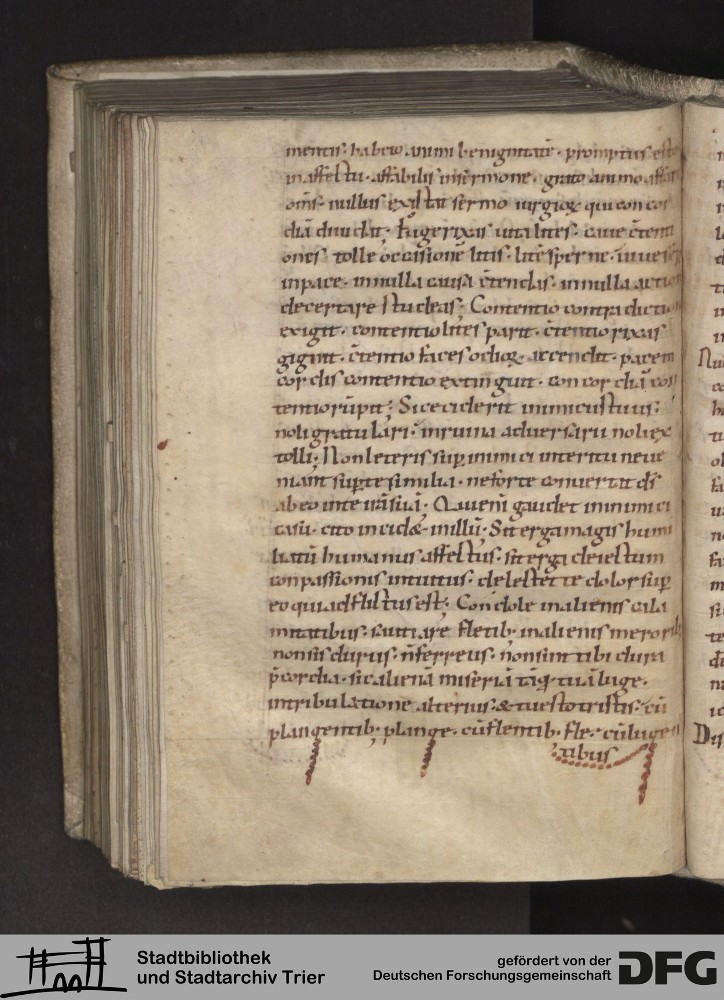 mentis. habeto animi benignitatē. promptus esto
in affectu. affabilis in sermone. grato animo affat
oīns. nullus existat sermo iurgiorꝝ qui concor
diā diuidit. Fuge rixas uita lites. caue c̄tenti
ones tolle occasionē litis. litē sperne. uiue sēp
in pace. in nulla causa c̄tendas. in nulla actio
decertare studeas. Contentio contradictio
exigit. contentio lites parit. c̄tentio rixas
gignit. c̄tentio faces odiorꝝ accendit. pacem
cordis contentio extinguit. concordiā con
tentio rūpit. Si ceciderit inimicus tuus.
noli gratulari. in ruina aduersarii noli ex
tolli. Non leteris sup inimici interitu ne ue
niant sup te similia. ne forte conuertat dš
ab eo in te irā suā. Qui enī gaudet in inimici
casū. cito incidet in illū. Sit erga magis humi
liatū humanus affectus. sit erga deiectum
conpassionis intuitus. delectet te dolor sup
eo qui adflictus est. Condole in alienis cala
mitatibus. sociare fletib; in alienis meroribꝰ
non sis durus. n̄ ferreus. non sint tibi dura
p̄cordia. sic alienā miseriā tāq tuā luge.
in tribulatione alterius. & tu esto tristis. cū
plangentib; plange. cū flentib; fle. cū lugen
tibus
Stadtbibliothek
und Stadtarchiv Trier
gefördert von der
Deutschen Forschungsgemeinschaft
DFG